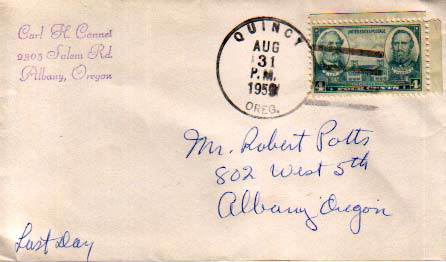 Carl H. Connet
2305 Salem Rd.
Albany, Oregon
QUINCY
AUG
31
P.M.
195
OREG.
UNITED STATES POSTAGE
4 FOUR CENTS 4
Mr. Robert Potts
802 West 5th
Albany Oregon
Last Day